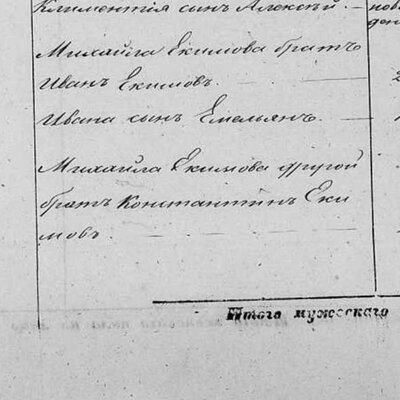 Климентія сынъ Алексѣй. —
Михайла Екимова братъ
Иванъ Екимовъ.
Ивана сынъ Емельянъ.
Михайла Екимова другой
братъ Константинъ Еки
мовъ
Итого мужескаго